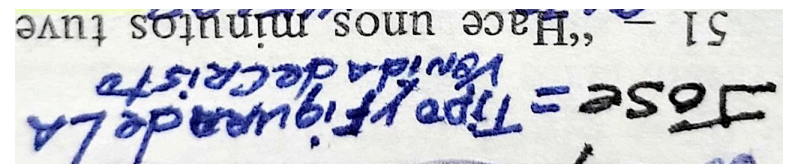 José = Tipo y figura de LA
Venida de CRISTO
51 — “Hace unos minutos tuve